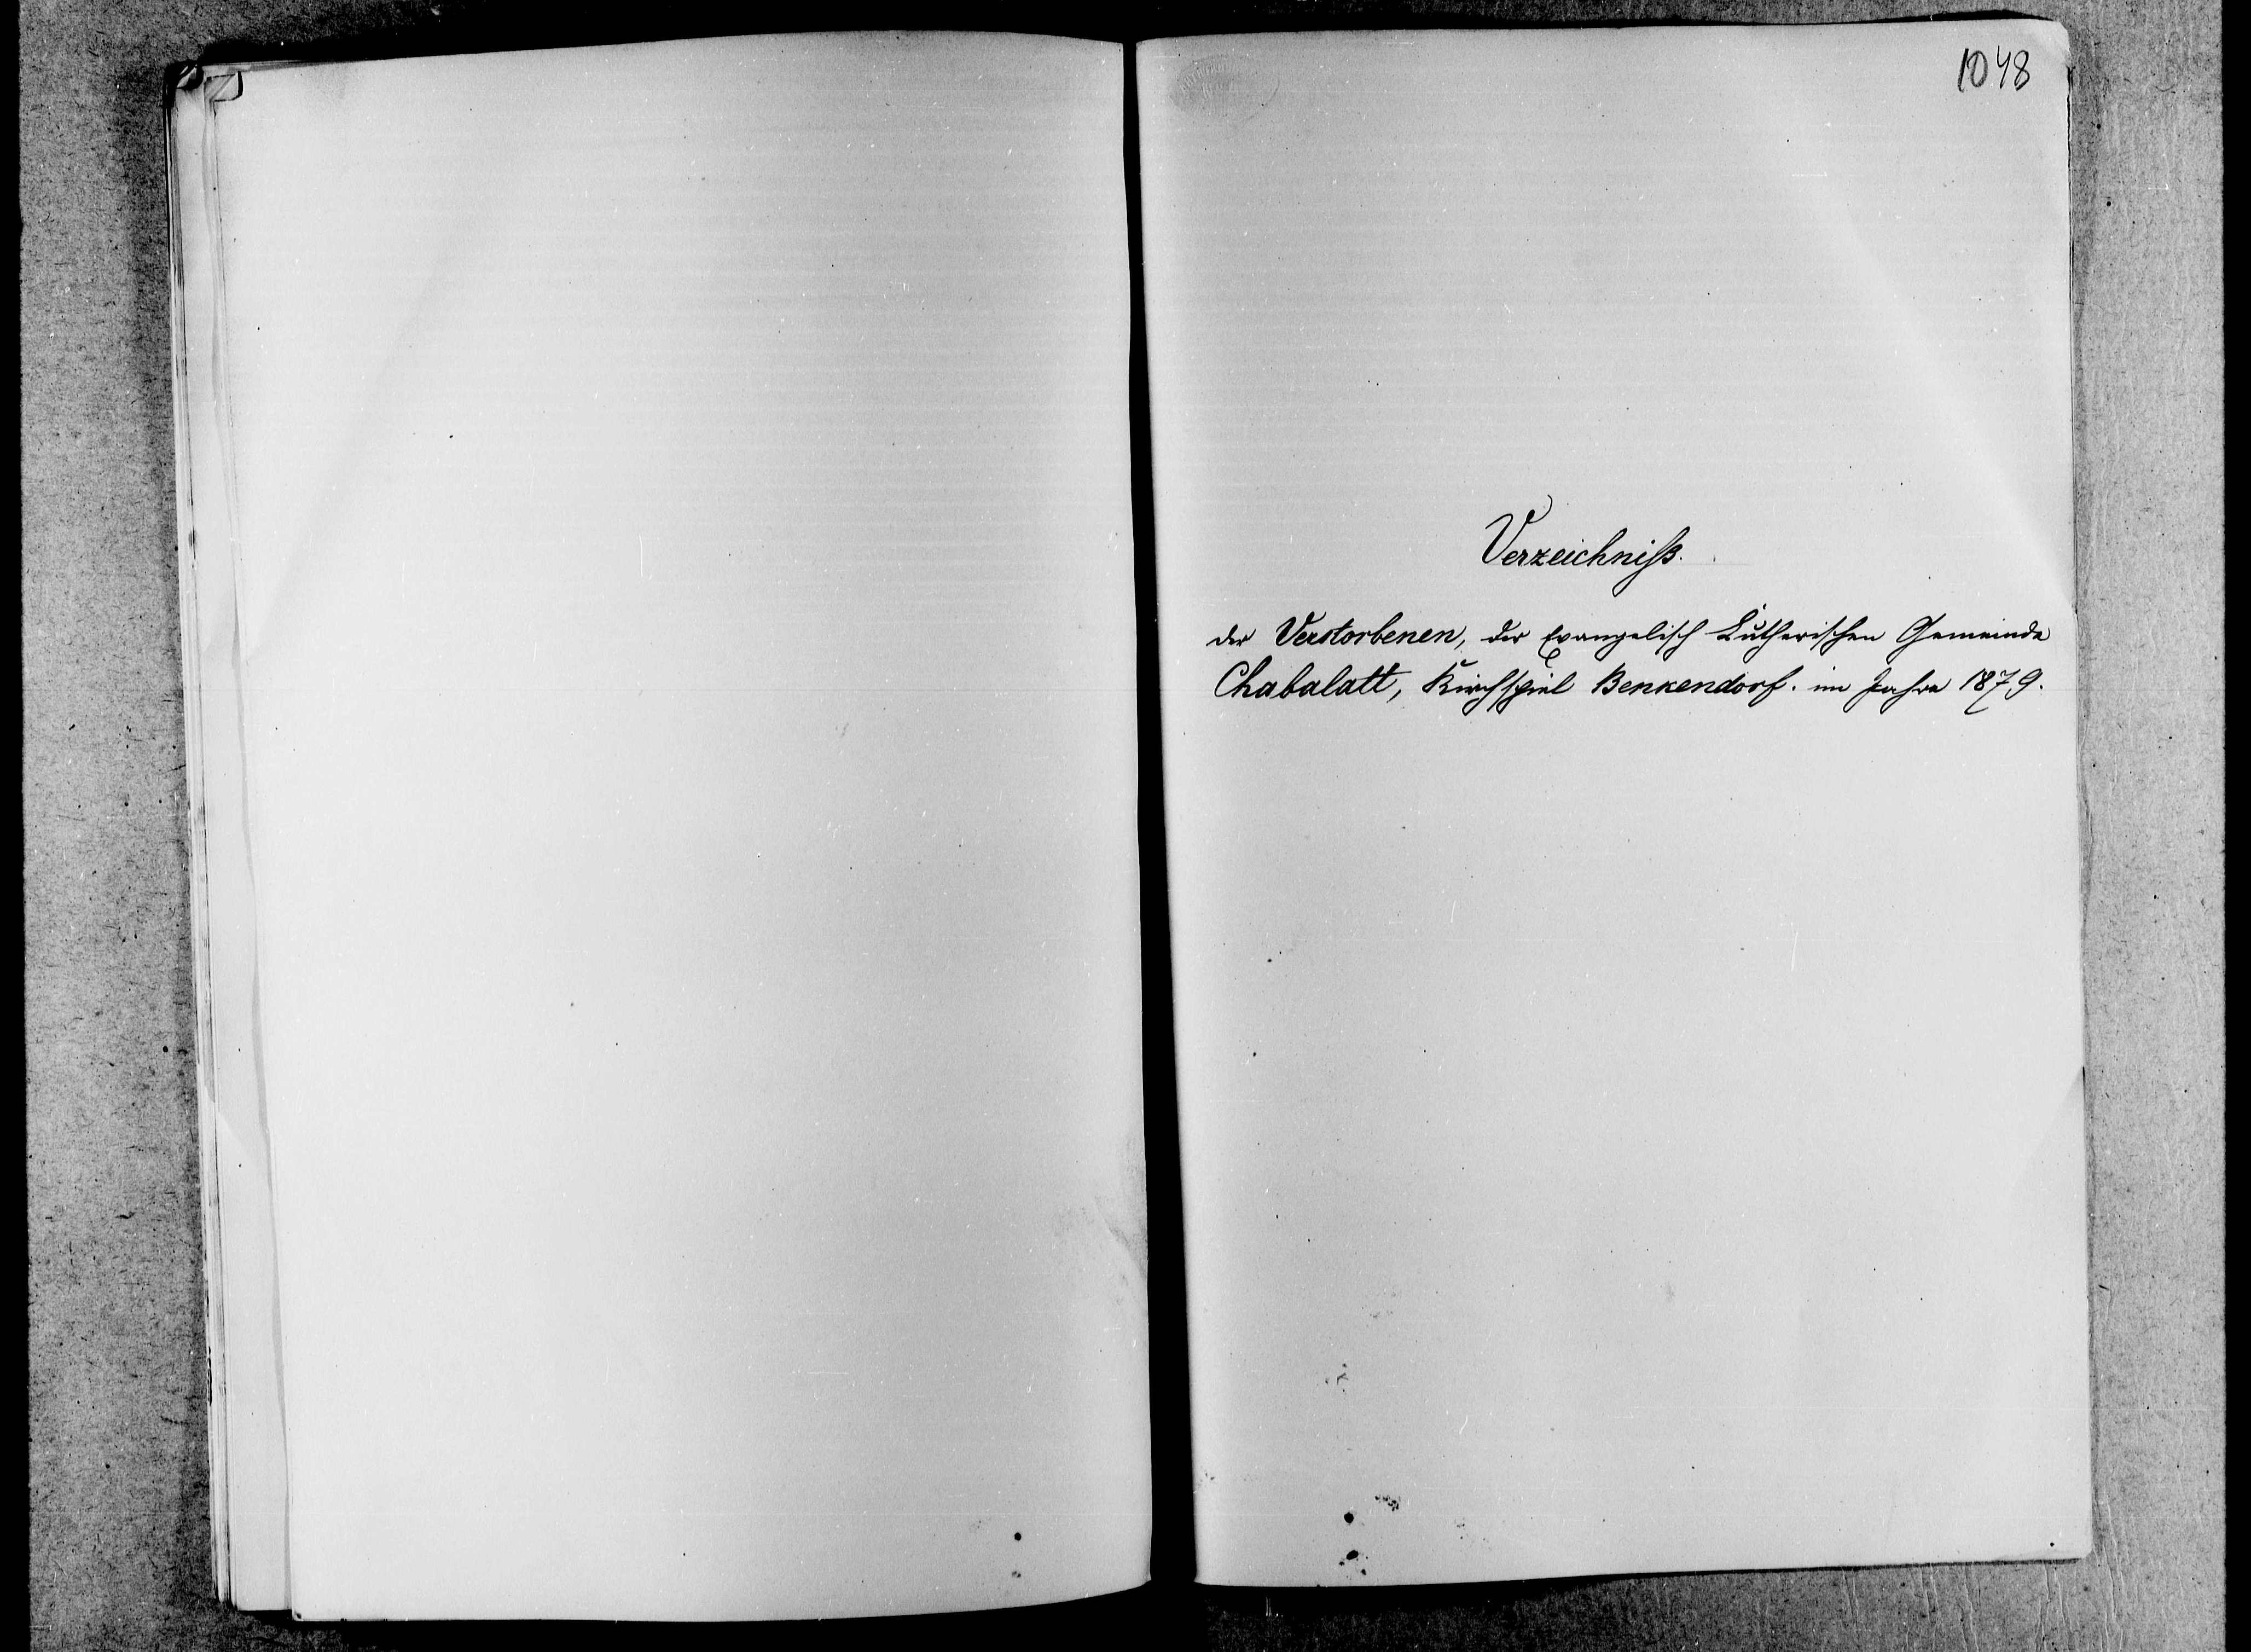 1048
Verzeichniß.
der Verstorbenen, der Evangelisch Lutherischen Gemeinde
Chabalatt, Kirchspiel Benkendorf. im Jahre 1879.